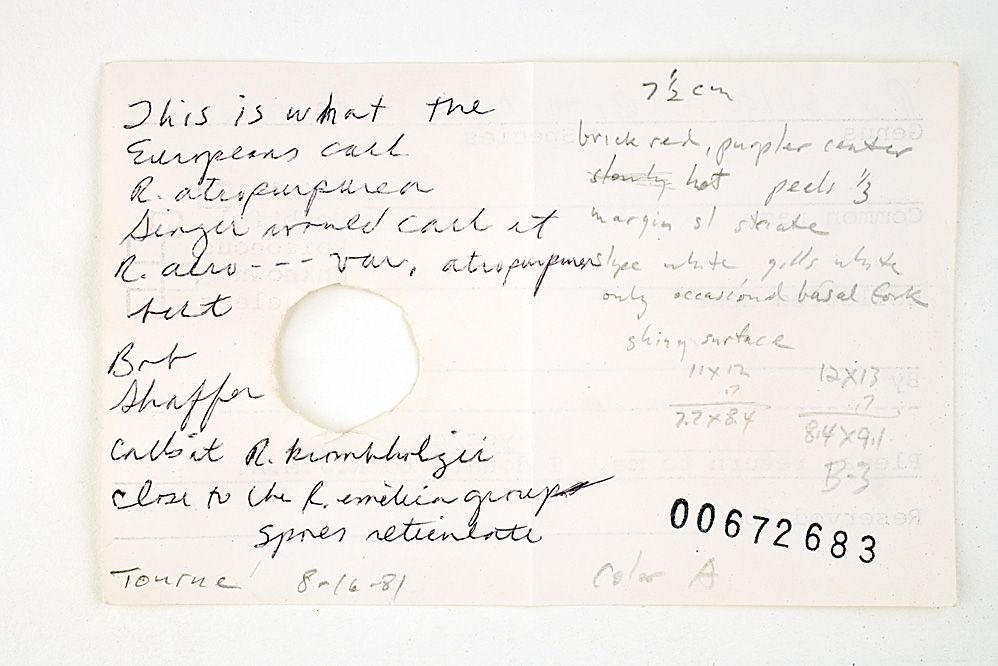 This is what the
Europeans call
R. atropurpurea
Singer would call it
R. aero -- var. atropurpurea
but
Bob
Shaffer
calls it R. krombholzii
close to the R. emetica group
spores reticulate
Tourne 8-16-81
7 1/2 cm
brick red, purpler center
slowly hot peels 1/3
margin sl striate
stipe white gills white
only occasional basal fork
shiny surface
11x12 12x13
.7 .7
7.7x8.4 8.4x9.1
B-3
00672683
Color A